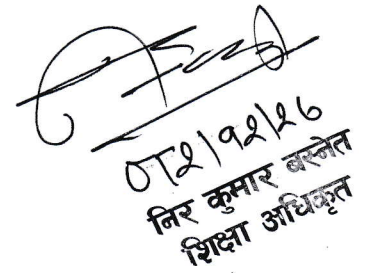 ०८२|१२|२७
निर कुमार बस्नेत
शिक्षा अधिकृत